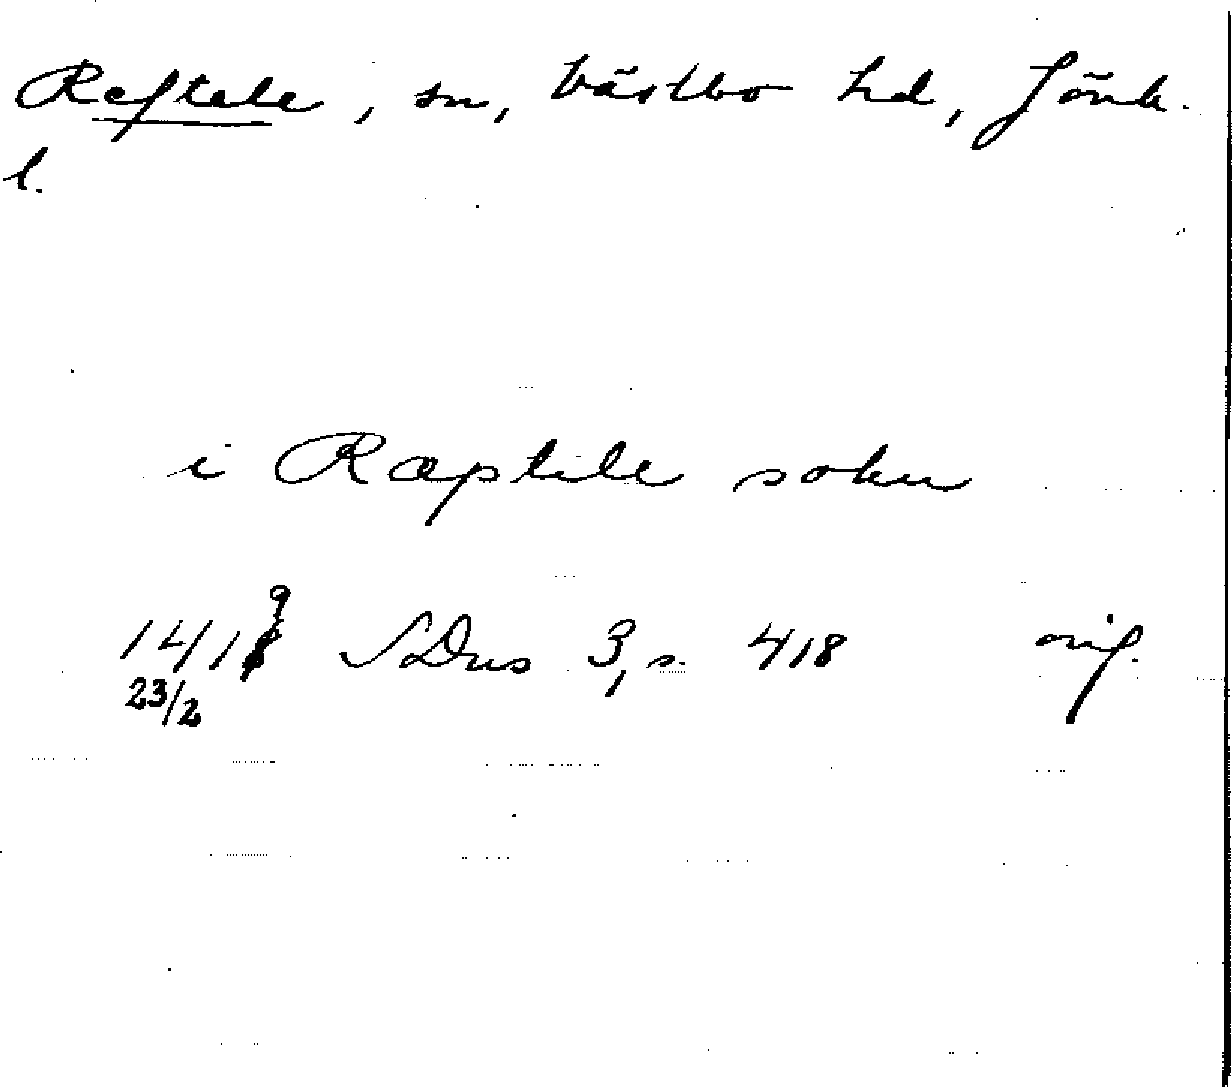 Reftele, sn, Västbo hd, Jönk.
l.
i Ræptele sokn
1419 SDns 3, s. 418 orig.
23/2